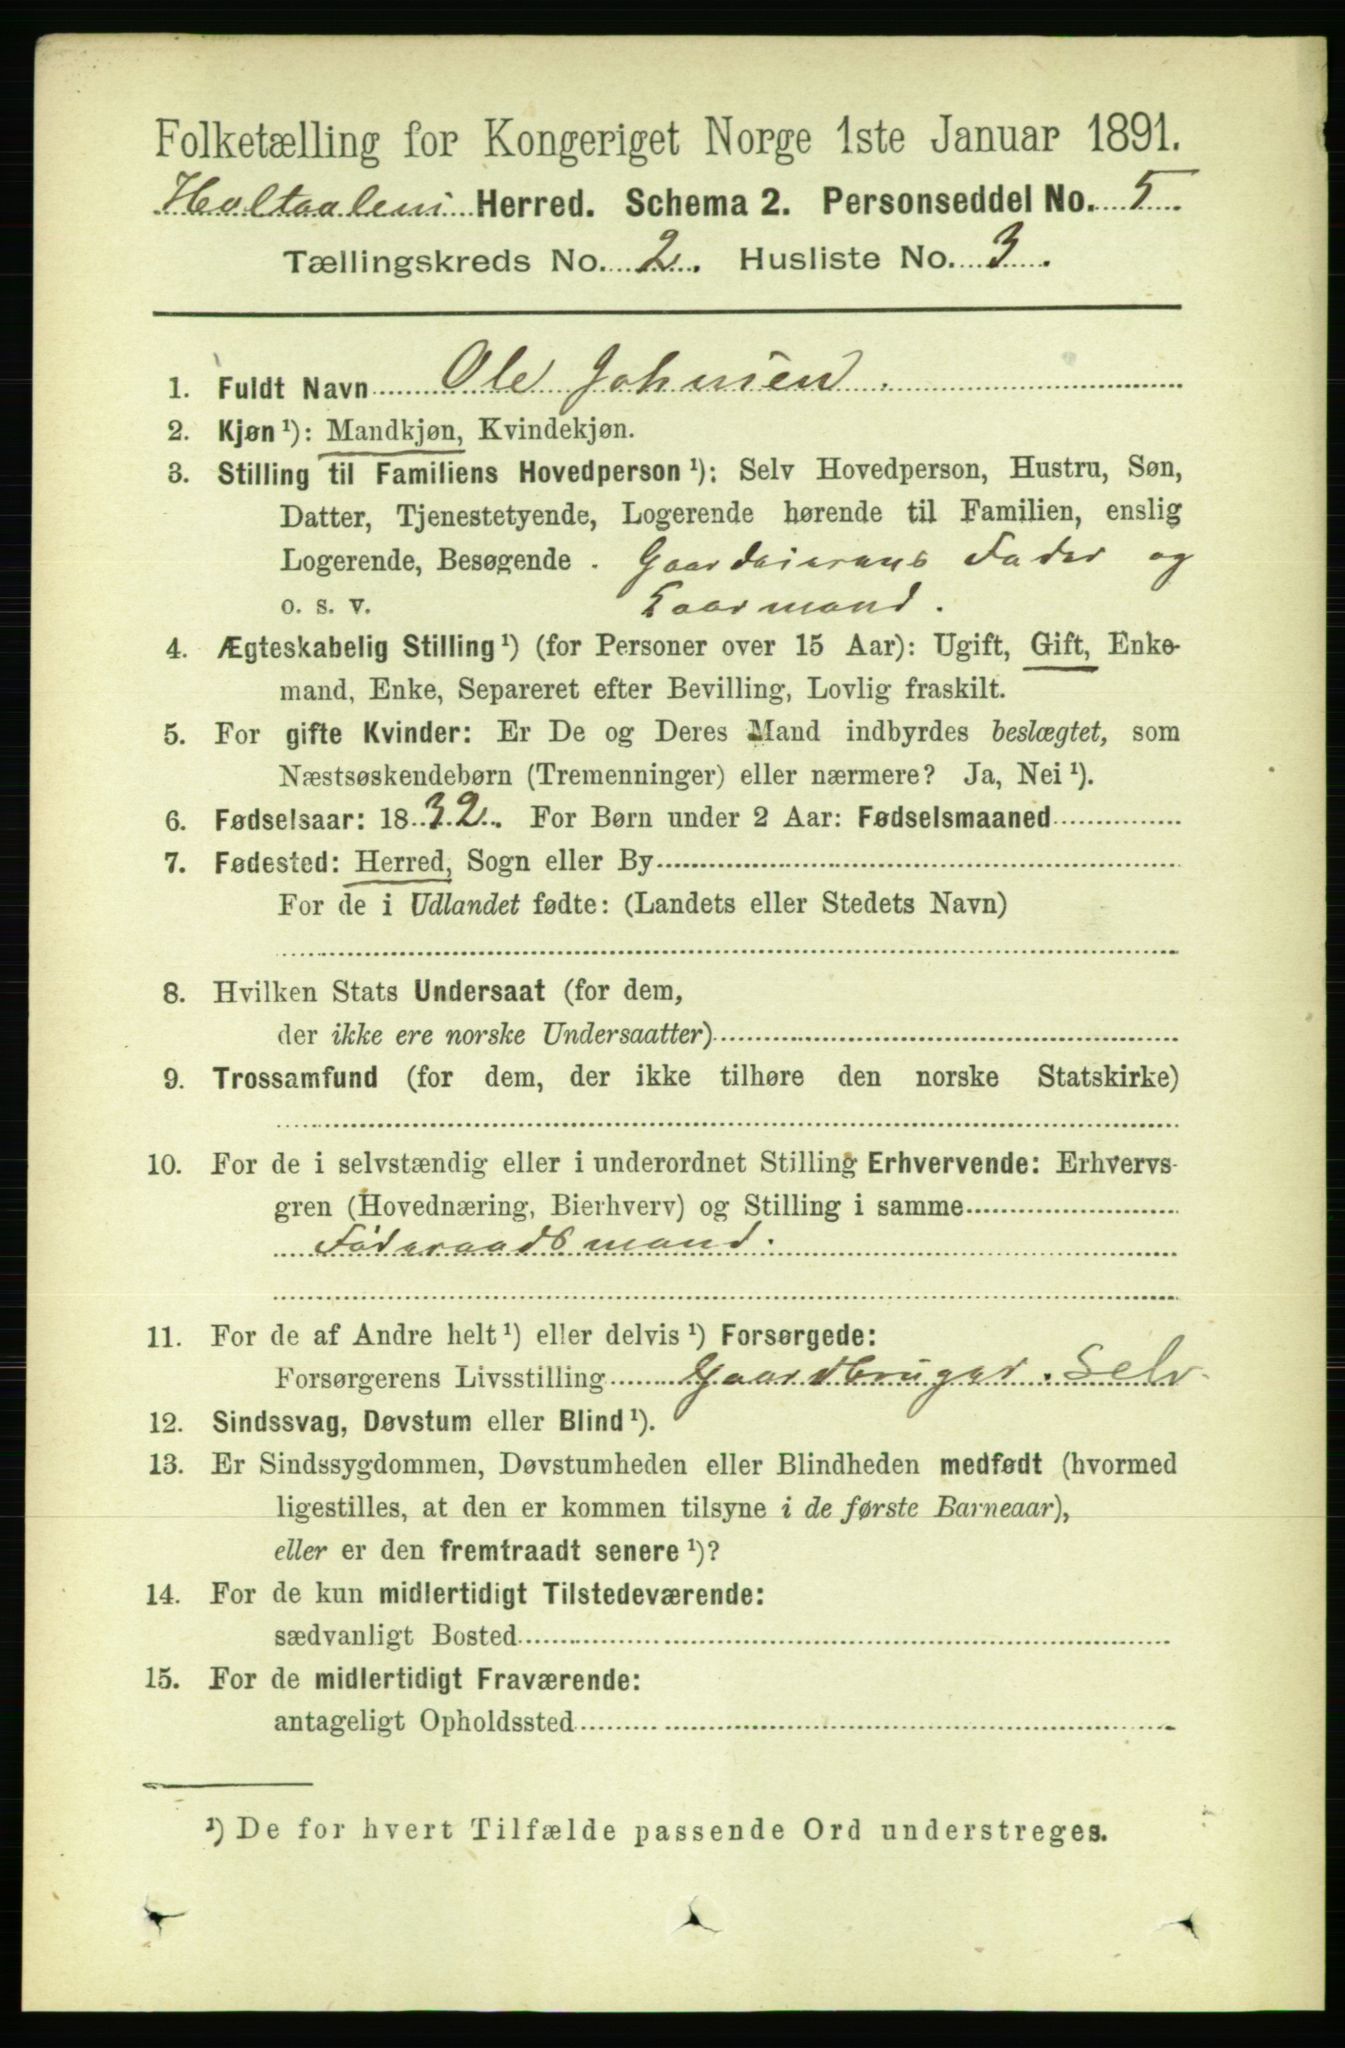 Folketælling for Kongeriget Norge 1ste Januar 1891.
Holtaalens Herred. Schema 2. Personseddel No. 5.
Tællingskreds No. 2. Husliste No. 3.
1. Fuldt Navn Ole Johnsen.
2. Kjøn ¹): Mandkjøn, Kvindekjøn.
3. Stilling til Familiens Hovedperson ¹): Selv Hovedperson, Hustru, Søn,
Datter, Tjenestetyende, Logerende hørende til Familien, enslig
Logerende, Besøgende . Gaardeierens Fader og
o. s. v. Kaarmand.
4. Ægteskabelig Stilling ¹) (for Personer over 15 Aar): Ugift, Gift, Enke-
mand, Enke, Separeret efter Bevilling, Lovlig fraskilt.
5. For gifte Kvinder: Er De og Deres Mand indbyrdes beslægtet, som
Næstsøskendebørn (Tremenninger) eller nærmere? Ja, Nei ¹).
6. Fødselsaar: 1832. For Børn under 2 Aar: Fødselsmaaned
7. Fødested: Herred, Sogn eller By
For de i Udlandet fødte: (Landets eller Stedets Navn)
8. Hvilken Stats Undersaat (for dem,
der ikke ere norske Undersaatter)
9. Trossamfund (for dem, der ikke tilhøre den norske Statskirke)
10. For de i selvstændig eller i underordnet Stilling Erhvervende: Erhvervs-
gren (Hovednæring, Bierhverv) og Stilling i samme
Föderaadsmand.
11. For de af Andre helt ¹) eller delvis ¹) Forsørgede:
Forsørgerens Livsstilling Gaardbruger. Selv.
12. Sindssvag, Døvstum eller Blind ¹).
13. Er Sindssygdommen, Døvstumheden eller Blindheden medfødt (hvormed
ligestilles, at den er kommen tilsyne i de første Barneaar),
eller er den fremtraadt senere ¹)?
14. For de kun midlertidigt Tilstedeværende:
sædvanligt Bosted
15. For de midlertidigt Fraværende:
antageligt Opholdssted
¹) De for hvert Tilfælde passende Ord understreges.